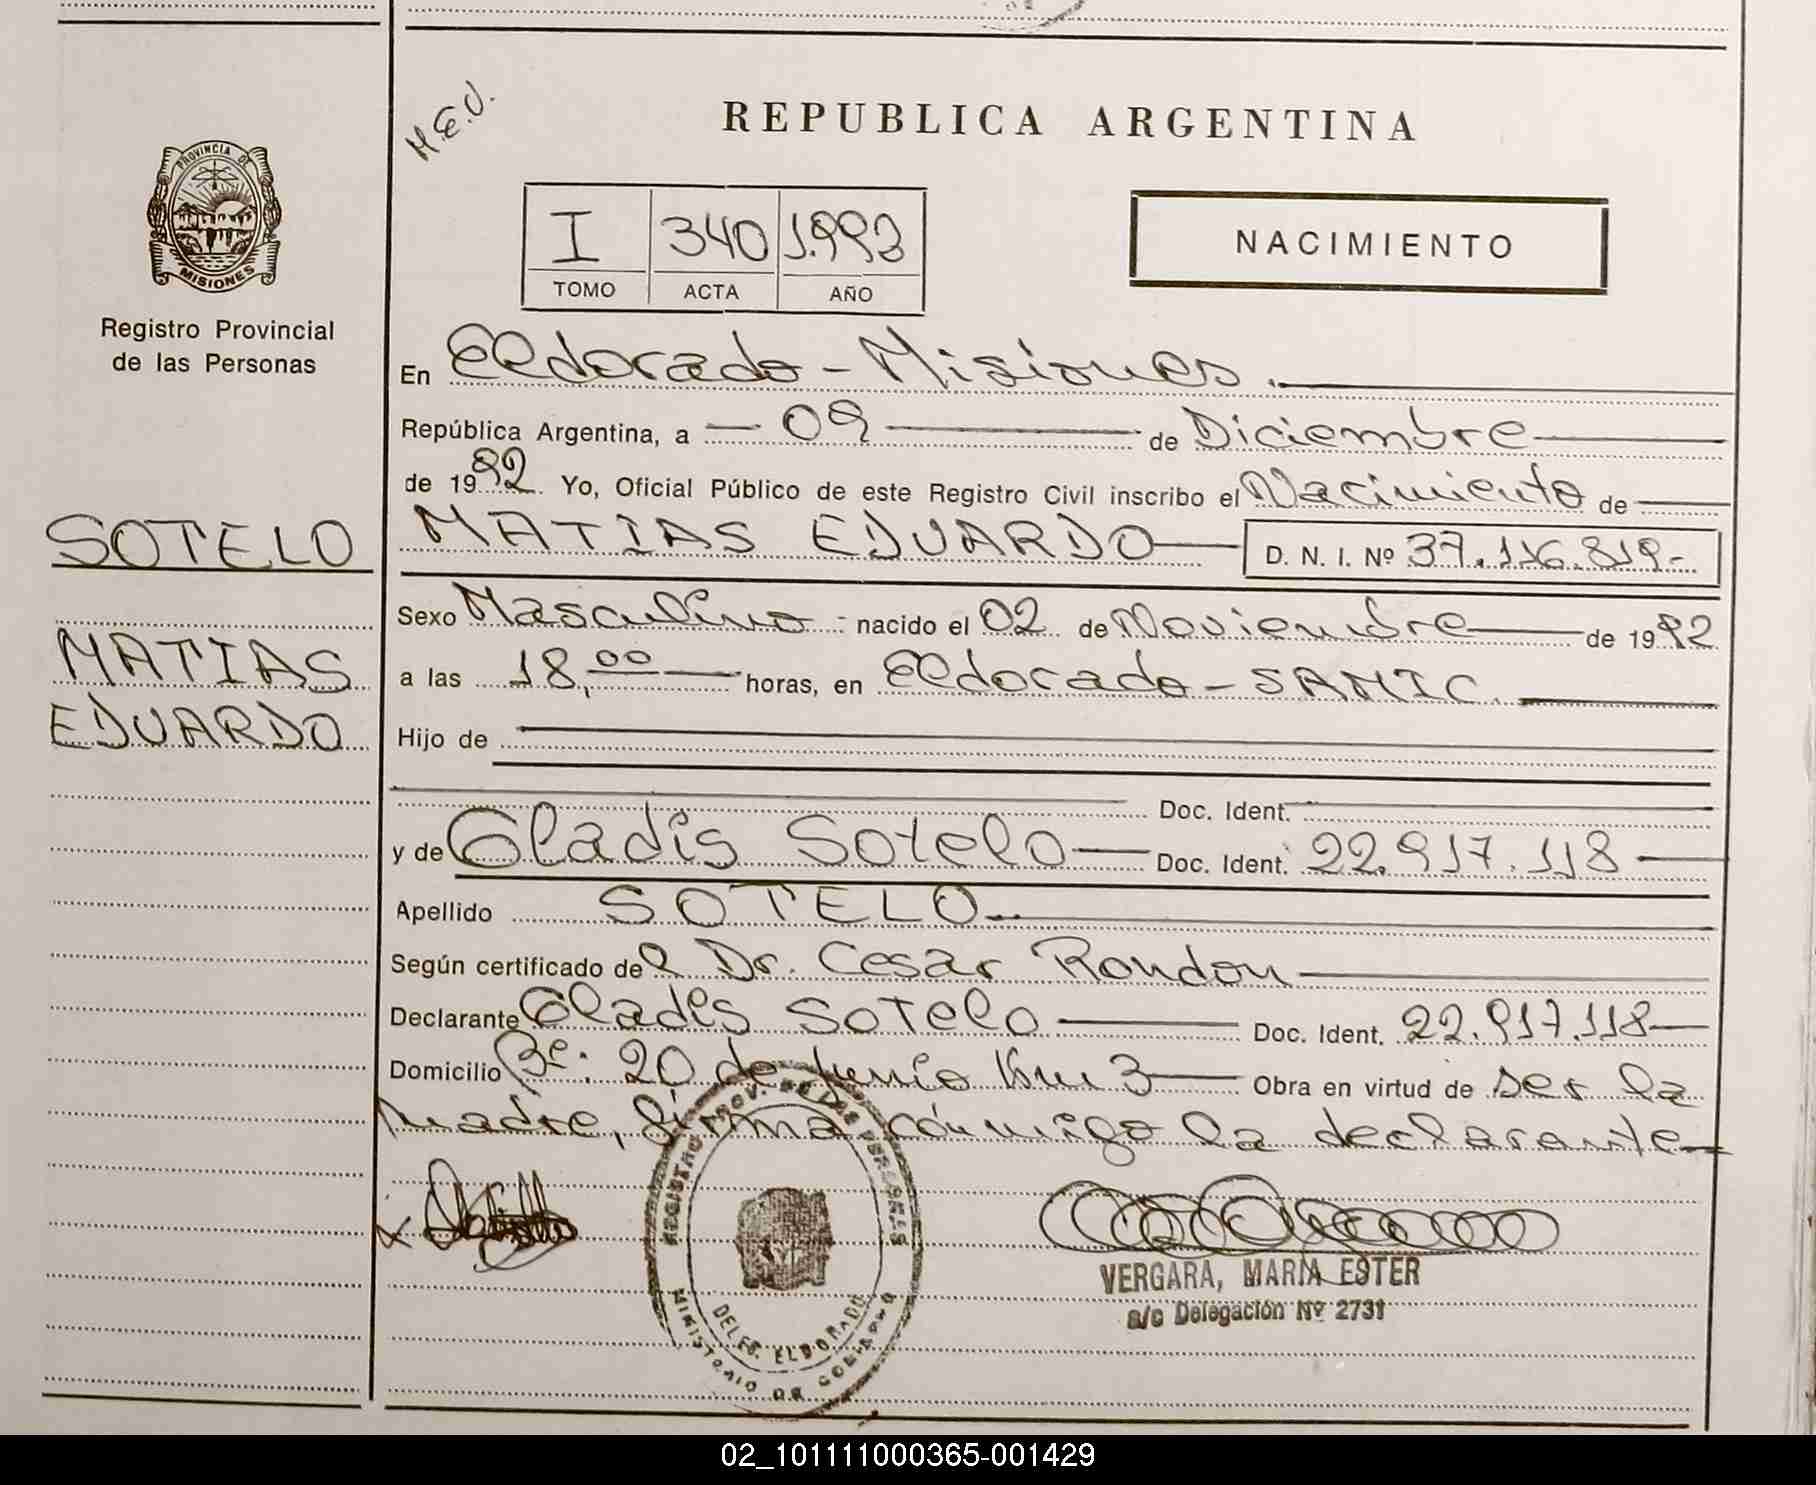 M.E.V.
REPUBLICA ARGENTINA
PROVINCIA DE
MISIONES
Registro Provincial
de las Personas
I 340 1.993
TOMO ACTA AÑO
NACIMIENTO
En Eldorado - Misiones.
República Argentina, a - 09 de Diciembre
de 1992. Yo, Oficial Público de este Registro Civil inscribo el Nacimiento de
SOTELO
MATIAS EDUARDO D. N. I. Nº 37.116.819-
MATIAS
EDUARDO
Sexo Masculino : nacido el 02 de Noviembre de 1992
a las 18,00 horas, en Eldorado - SAMIC.
Hijo de
Doc. Ident.
y de Gladis Sotelo Doc. Ident. 22.917.118
Apellido SOTELO
Según certificado del Dr. Cesar Rondon
Declarante Gladis Sotelo Doc. Ident. 22.917.118
Domicilio Bº: 20 de Junio Km 3 Obra en virtud de ser la
madre, firma conmigo la declarante
REGISTRO PROV. DE LAS PERSONAS
DELEG. ELDORADO
MINISTERIO DE GOBIERNO
VERGARA, MARIA ESTER
a/c Delegación Nº 2731
02_101111000365-001429